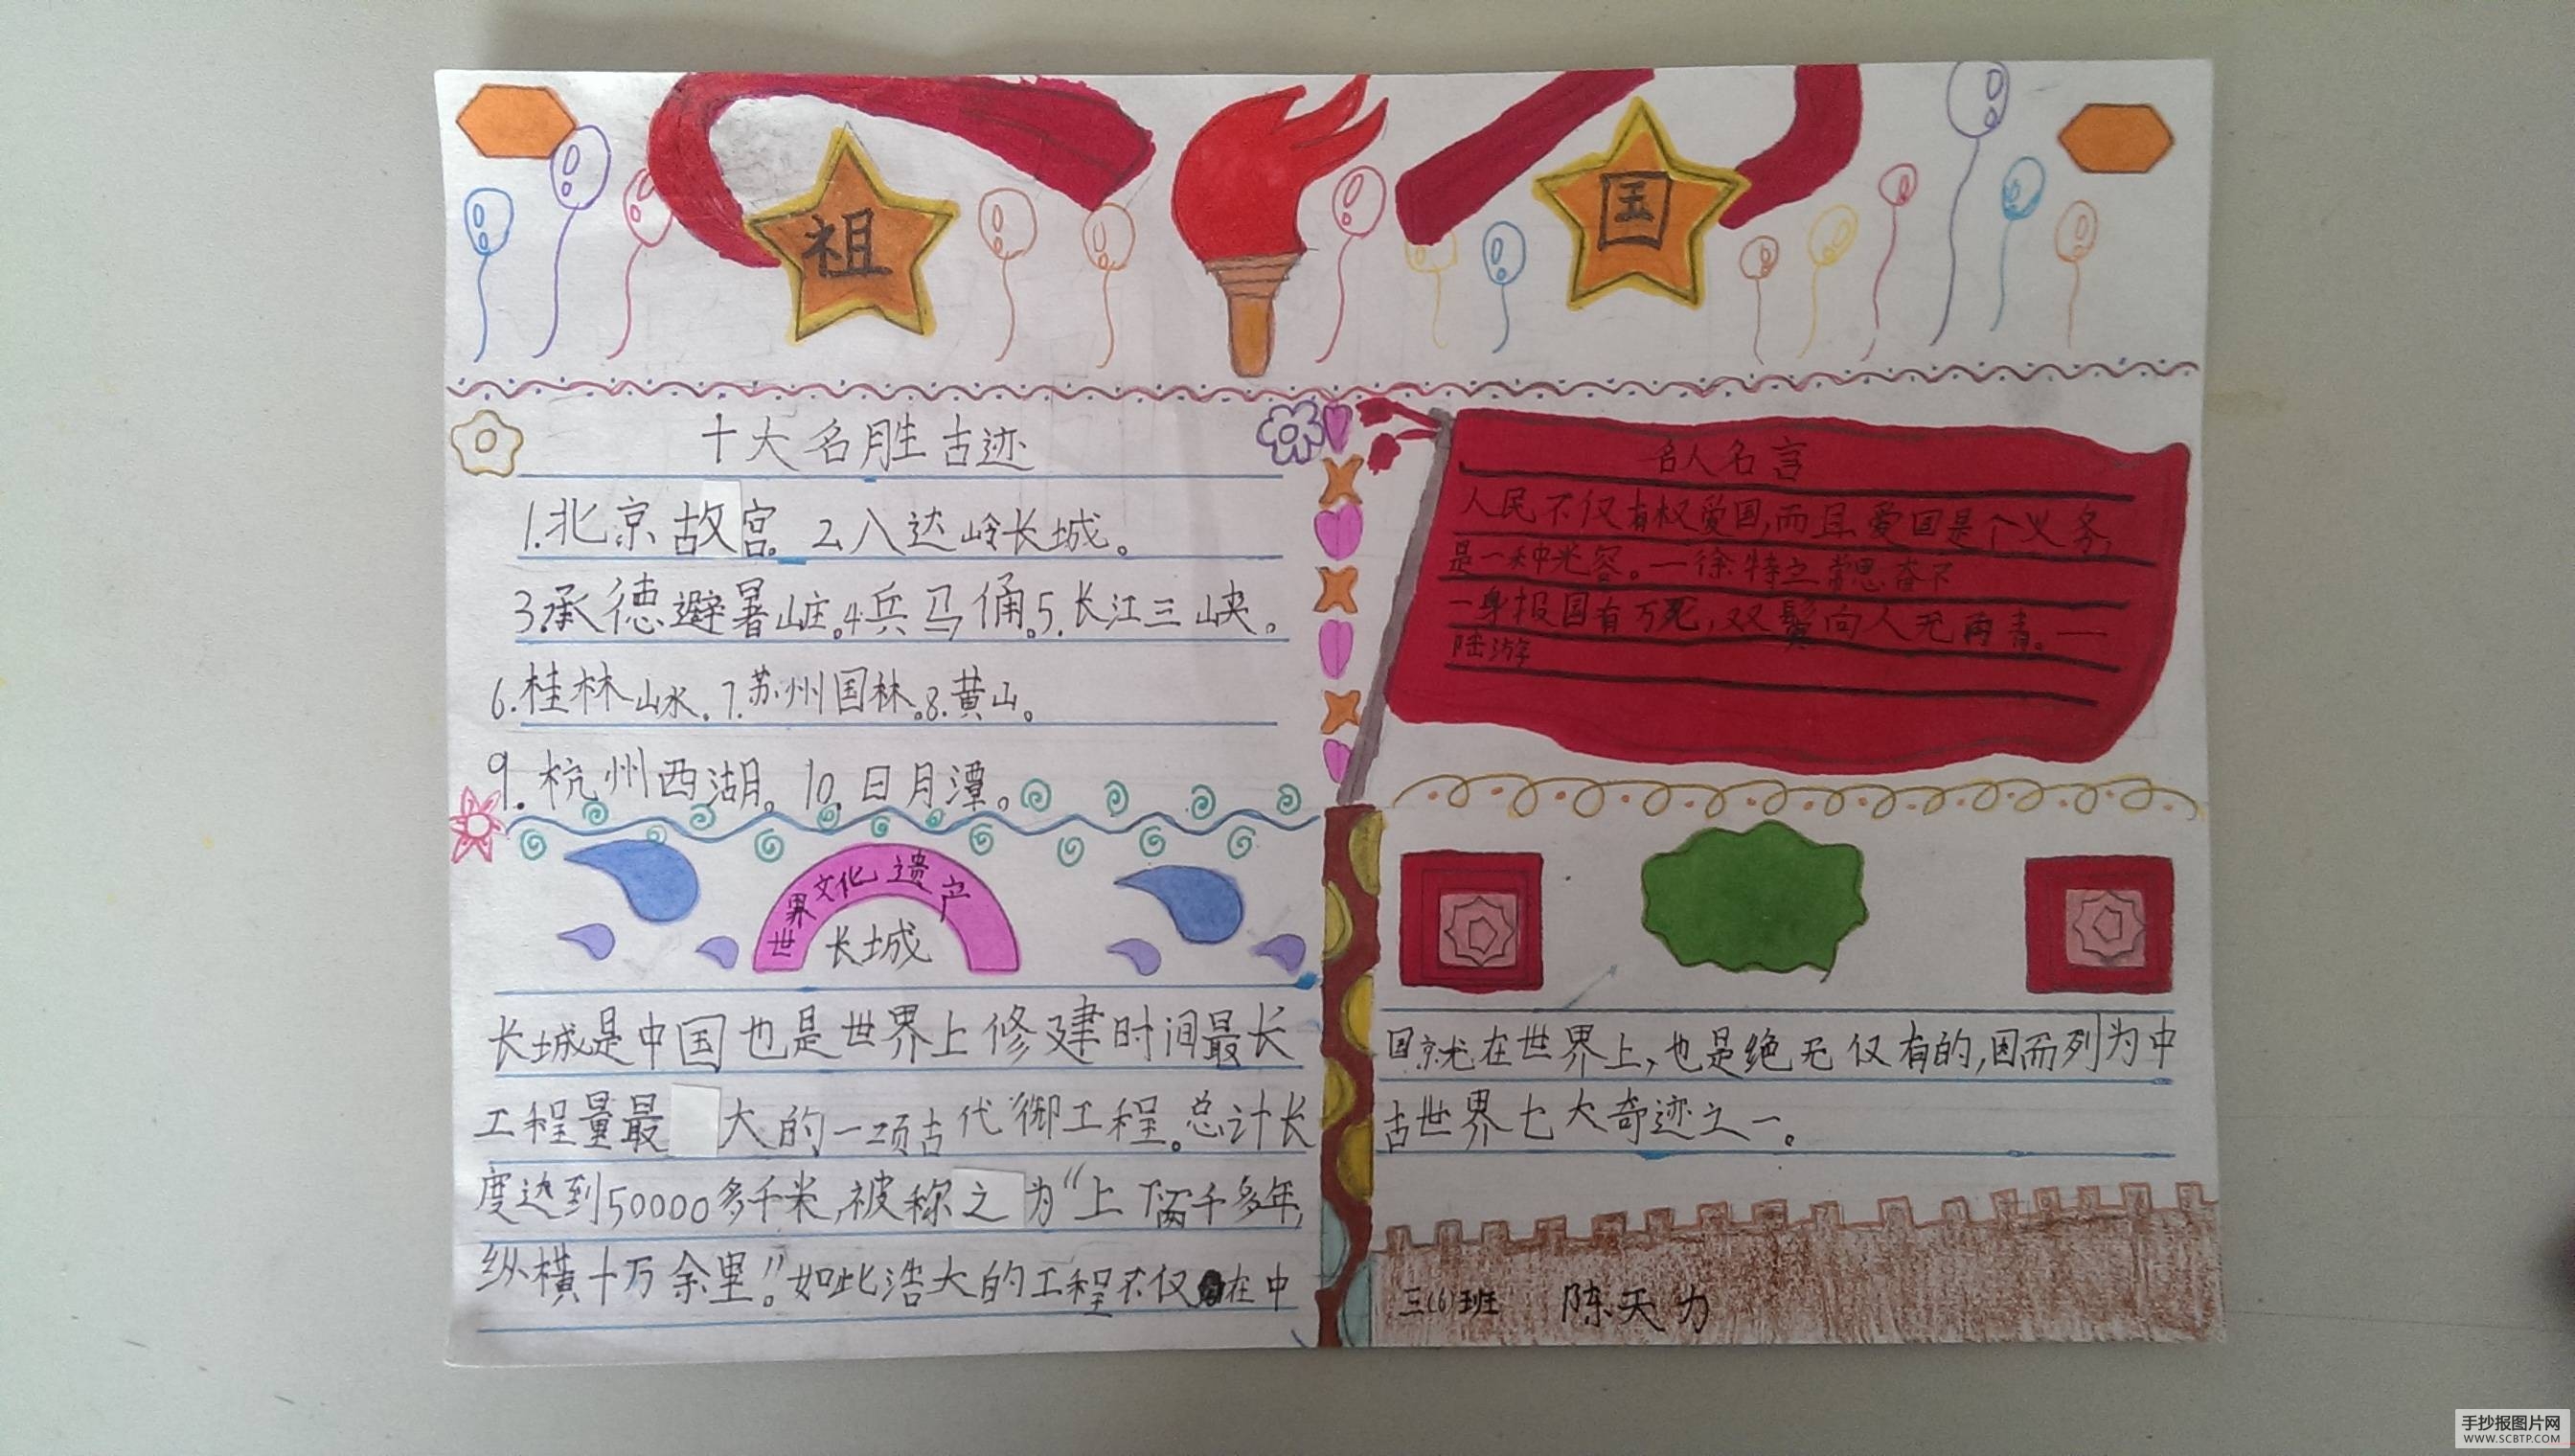 祖国
十大名胜古迹
1.北京故宫。2.八达岭长城。
3.承德避暑山庄。4.兵马俑。5.长江三峡。
6.桂林山水。7.苏州国林。8.黄山。
9.杭州西湖。10.日月潭。
世界文化遗产
长城
长城是中国也是世界上修建时间最长
工程量最大的一项古代御工程。总计长
度达到50000多千米,被称之为“上下两千多年,
纵横十万余里”。如此浩大的工程不仅在中
名人名言
人民不仅有权爱国,而且爱国是个义务,
是一种光容。—徐特之 常思奋不
一身报国有万死,双鬓向人无再青。——
陆游
国就在世界上,也是绝无仅有的,因而列为中
古世界七大奇迹之一。
三(6)班 陈天力
手抄报图片网
WWW.SCBTP.COM